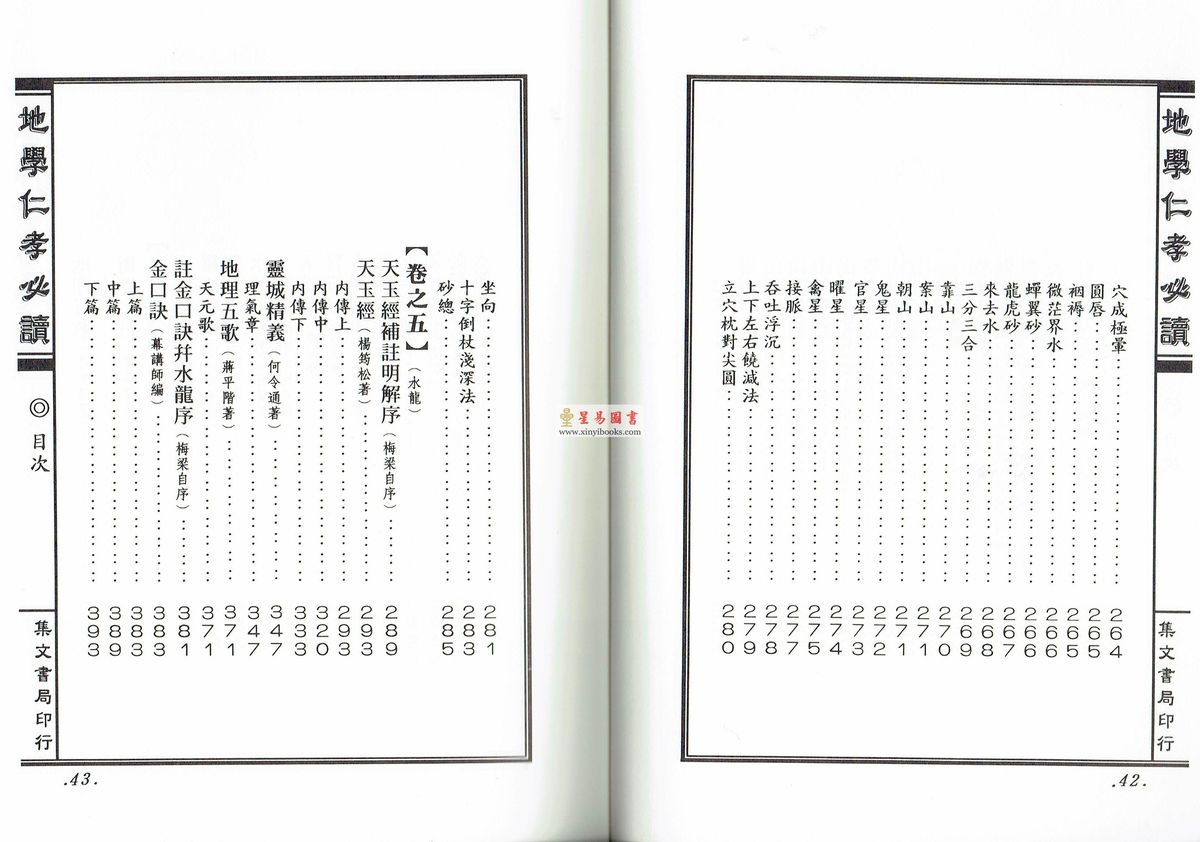 地學仁孝必讀
集文書局印行
穴成極暈 264
圓唇 265
裀褥 265
微茫界水 266
蟬翼砂 266
龍虎砂 267
來去水 268
三分三合 269
靠山 270
案山 271
朝山 271
鬼星 272
官星 273
曜星 274
禽星 275
接脈 277
吞吐浮沉 278
上下左右饒減法 279
立穴枕對尖圓 280
.42.
星易圖書
www.xinyibooks.com
坐向 281
十字倒杖淺深法 283
砂總 285
【卷之五】(水龍)
天玉經補註明解序(梅梁自序) 289
天玉經(楊筠松著) 293
內傳上 293
內傳中 320
內傳下 333
靈城精義(何令通著) 347
理氣章 347
地理五歌(蔣平階著) 371
天元歌 371
註金口訣幷水龍序(梅梁自序) 381
金口訣(幕講師編) 383
上篇 383
中篇 389
下篇 393
地學仁孝必讀
◎目次
集文書局印行
.43.